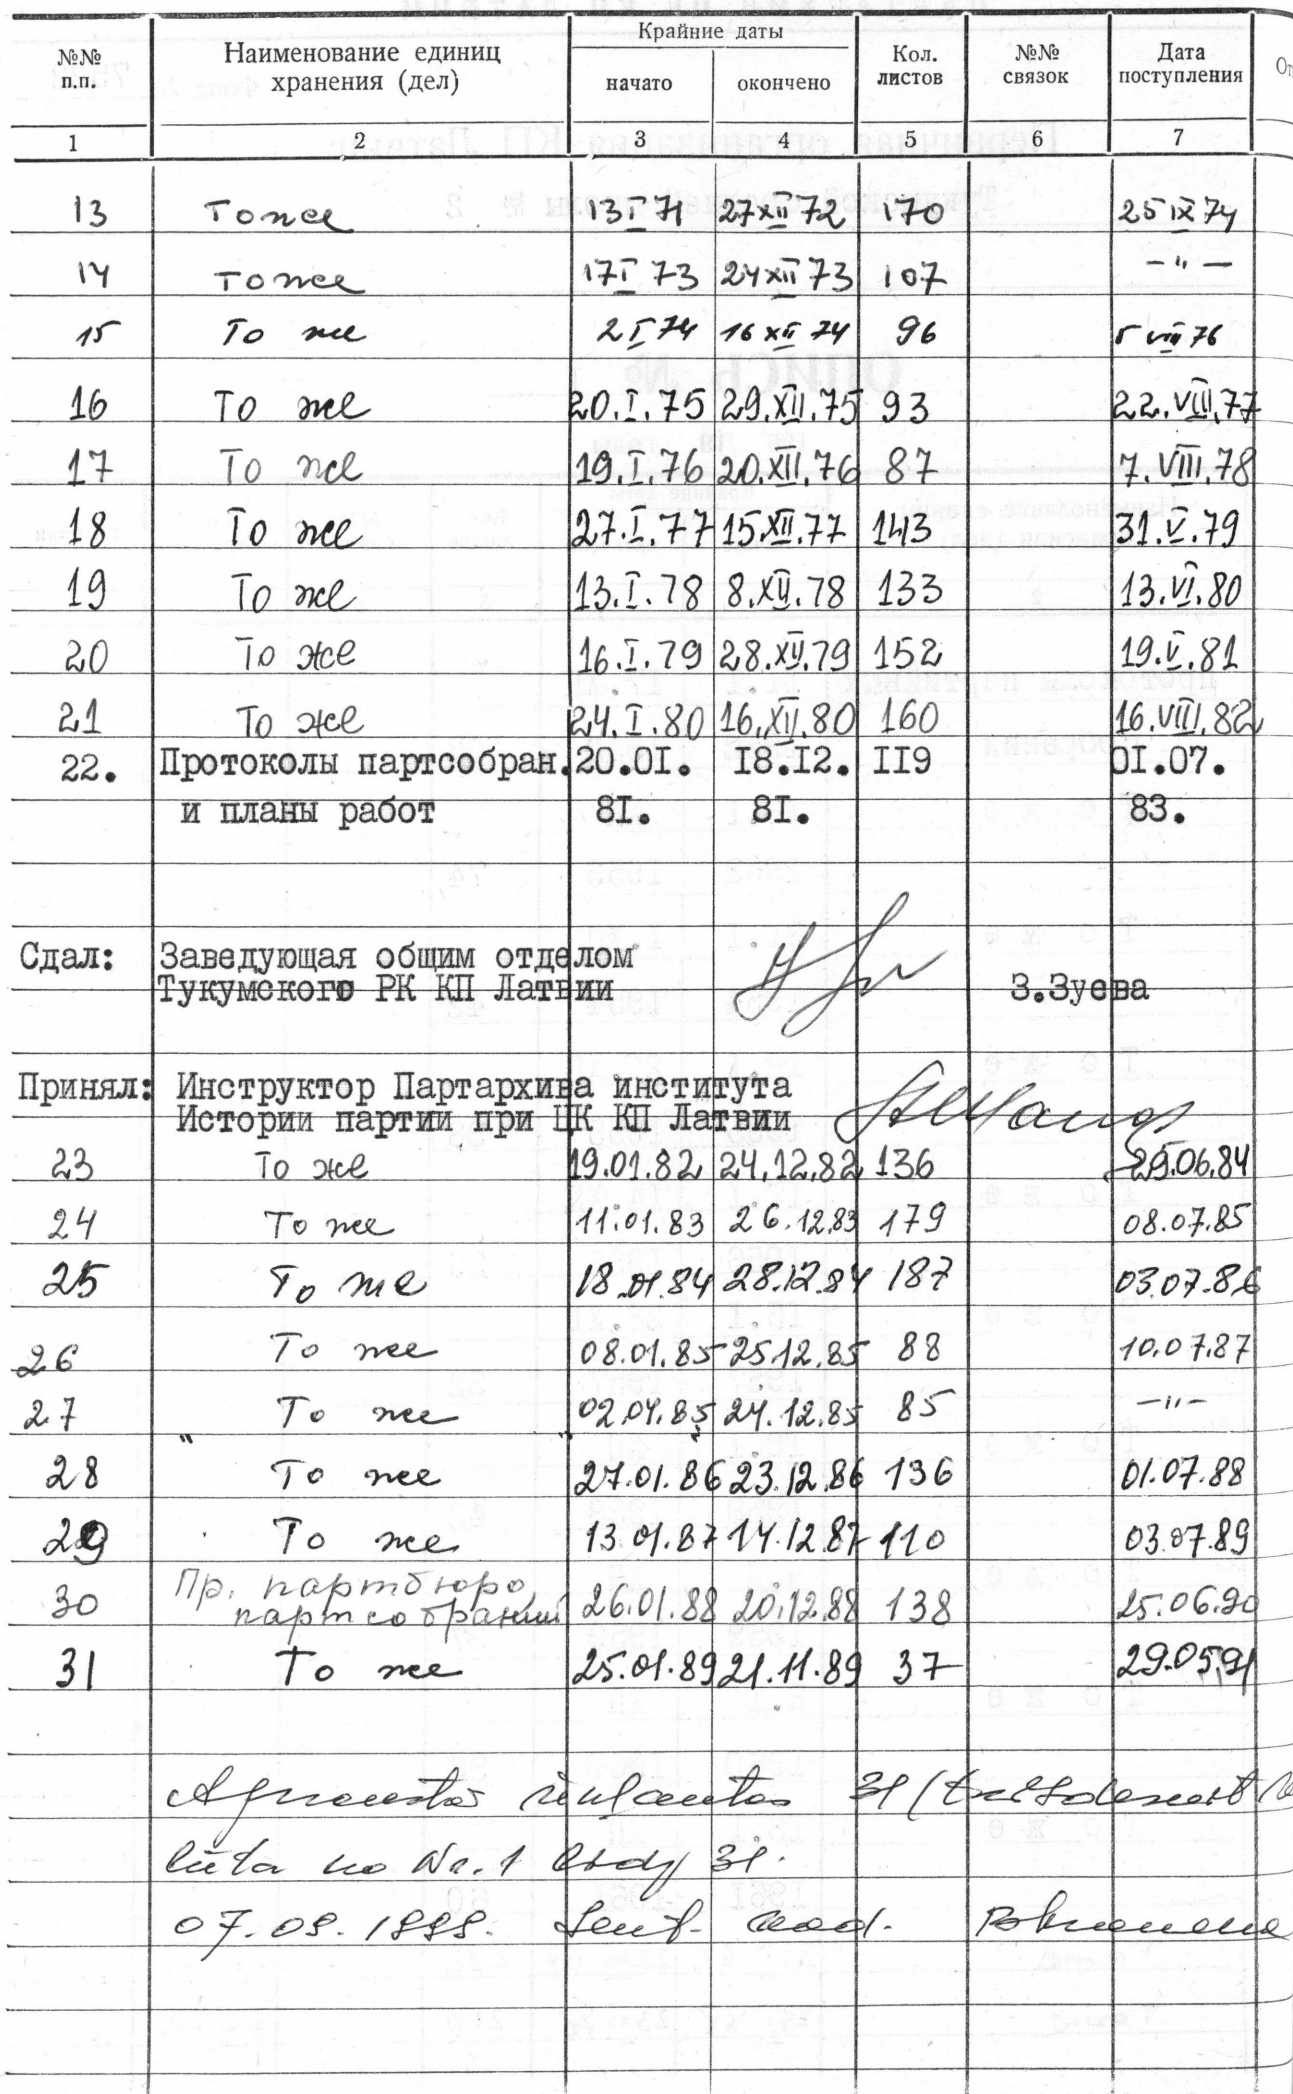 №№ п.п. Наименование единиц хранения (дел) Крайние даты Кол. листов №№ связок Дата поступления
начато окончено
1 2 3 4 5 6 7
13 То же 13 I 71 27 XII 72 170 25 IX 74
14 То же 17 I 73 24 XII 73 107 —"—
15 То же 2 I 74 16 XII 74 96 5 VIII 76
16 То же 20.I.75 29.XII.75 93 22.VIII.77
17 То же 19.I.76 20.XII.76 87 7.VIII.78
18 То же 27.I.77 15.XII.77 143 31.V.79
19 То же 13.I.78 8.XII.78 133 13.VI.80
20 То же 16.I.79 28.XII.79 152 19.V.81
21 То же 24.I.80 16.XII.80 160 16.VIII.82
22. Протоколы партсобран. 20.0I. I8.I2. II9 0I.07.
и планы работ 8I. 8I. 83.
Сдал: Заведующая общим отделом
Тукумского РК КП Латвии З.Зуева
Принял: Инструктор Партархива института
Истории партии при ЦК КП Латвии
23 То же 19.01.82 24.12.82 136 29.06.84
24 То же 11.01.83 26.12.83 179 08.07.85
25 То же 18.01.84 28.12.84 187 03.07.86
26 То же 08.01.85 25.12.85 88 10.07.87
27 То же 02.04.85 24.12.85 85 —"—
28 " То же 27.01.86 23.12.86 136 01.07.88
29 То же 13.01.87 14.12.87 110 03.07.89
30 Пр. партбюро, партсобраний 26.01.88 20.12.88 138 25.06.90
31 То же 25.01.89 21.11.89 37 29.05.91
31 (
no Nr. 1 līdz 31.
07.09.1998.